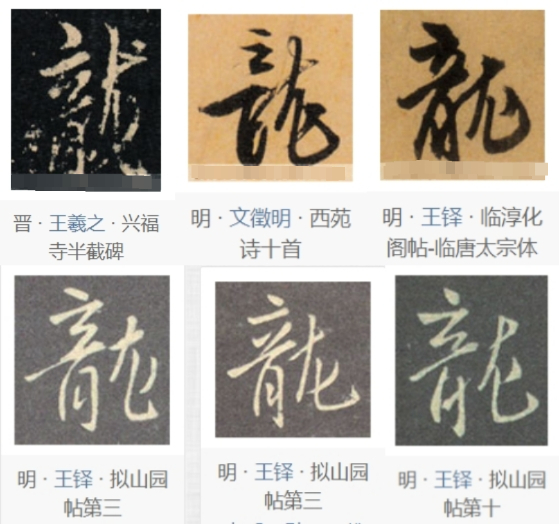 龍
晋·王羲之·兴福
寺半截碑
龍
明·文徵明·西苑
诗十首
龍
明·王铎·临淳化
阁帖-临唐太宗体
龍
明·王铎·拟山园
帖第三
龍
明·王铎·拟山园
帖第三
龍
明·王铎·拟山园
帖第十